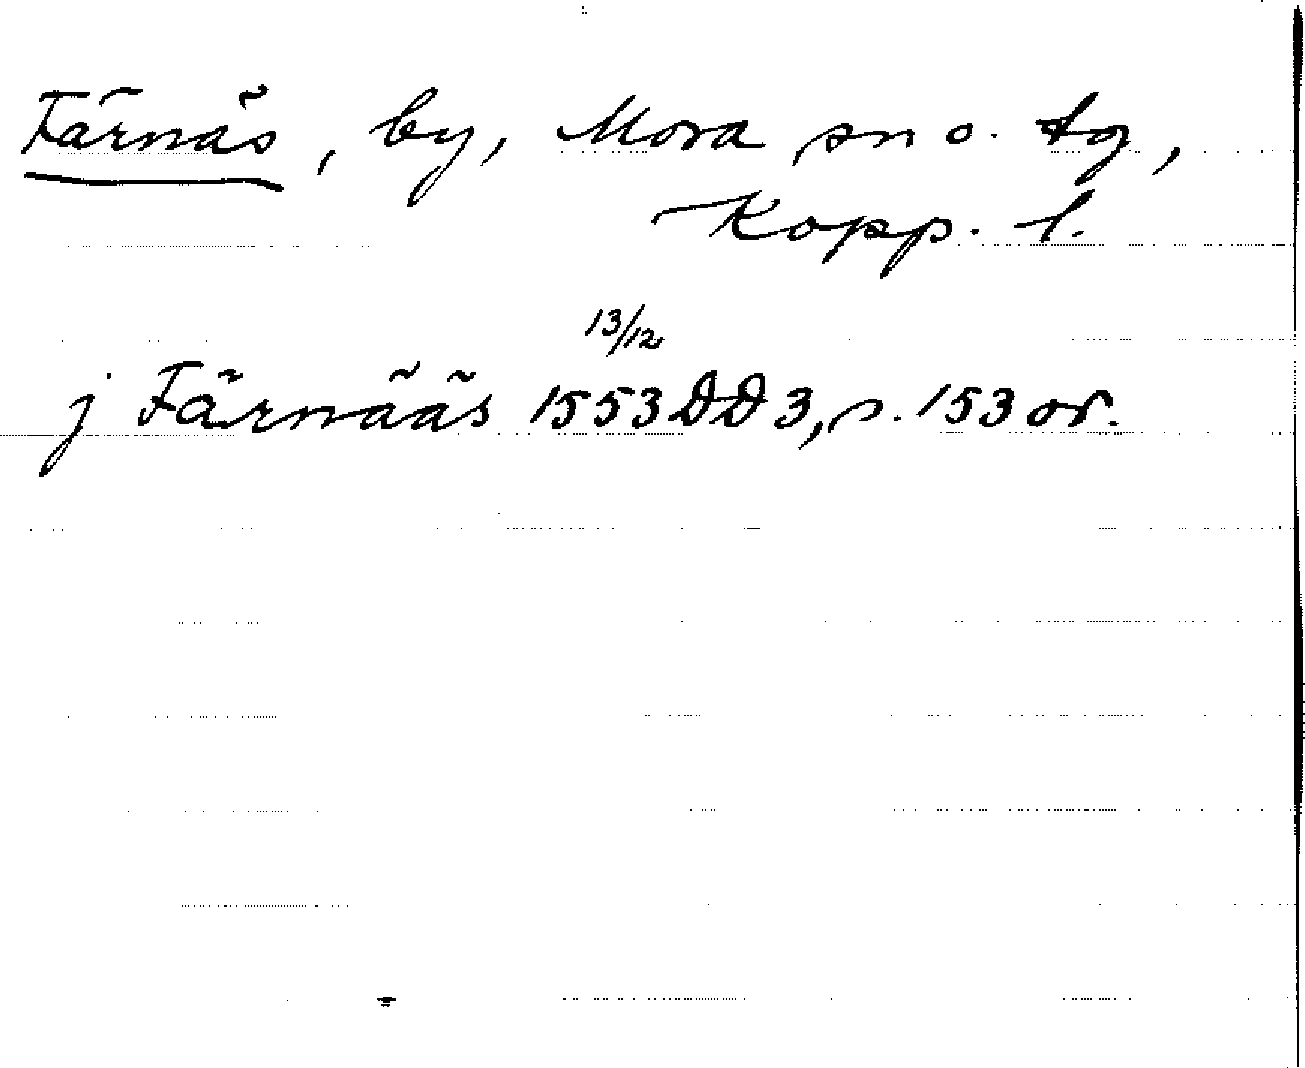 Färnäs, by, Mora sn o. tg,
Kopp. l.
13/12
j Färnääs 1553 DD 3, s. 153 or.